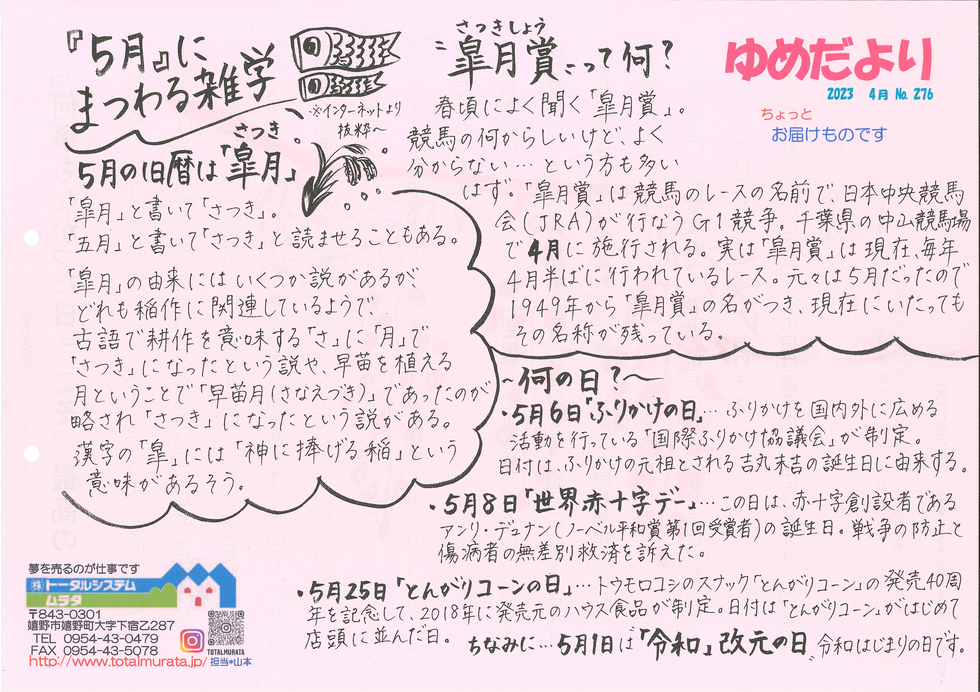 『5月』に
まつわる雑学
※インターネットより
抜粋~
ゆめだより
2023 4月 No. 276
ちょっと
お届けものです
さつき
5月の旧暦は「皐月」
「皐月」と書いて「さつき」。
「五月」と書いて「さつき」と読ませることもある。
「皐月」の由来にはいくつか説があるが、
どれも稲作に関連しているようで、
古語で耕作を意味する「さ」に「月」で
「さつき」になったという説や、早苗を植える
月ということで「早苗月(さなえづき)」であったのが
略され「さつき」になったという説がある。
漢字の「皐」には「神に捧げる稲」という
意味があるそう。
さつきしょう
"皐月賞"って何?
春頃によく聞く「皐月賞」。
競馬の何からしいけど、よく
分からない…という方も多い
はず。「皐月賞」は競馬のレースの名前で、日本中央競馬
会(JRA)が行なうG1競争。千葉県の中山競馬場
で4月に施行される。実は「皐月賞」は現在、毎年
4月半ばに行われているレース。元々は5月だったので
1949年から「皐月賞」の名がつき、現在にいたっても
その名称が残っている。
~何の日?~
・5月6日「ふりかけの日」…ふりかけを国内外に広める
活動を行っている「国際ふりかけ協議会」が制定。
日付は、ふりかけの元祖とされる吉丸末吉の誕生日に由来する。
・5月8日「世界赤十字デー」…この日は、赤十字創設者である
アンリ・デュナン(ノーベル平和賞第1回受賞者)の誕生日。戦争の防止と
傷病者の無差別救済を訴えた。
・5月25日「とんがりコーンの日」…トウモロコシのスナック「とんがりコーン」の発売40周
年を記念して、2018年に発売元のハウス食品が制定。日付は「とんがりコーン」がはじめて
店頭に並んだ日。 ちなみに…5月1日は「令和」改元の日 令和はじまりの日です。
夢を売るのが仕事です
㈱トータルシステム
ムラタ
〒843-0301
嬉野市嬉野町大字下宿乙287
TEL 0954-43-0479
FAX 0954-43-5078
http://www.totalmurata.jp/
TOTALMURATA
担当*山本